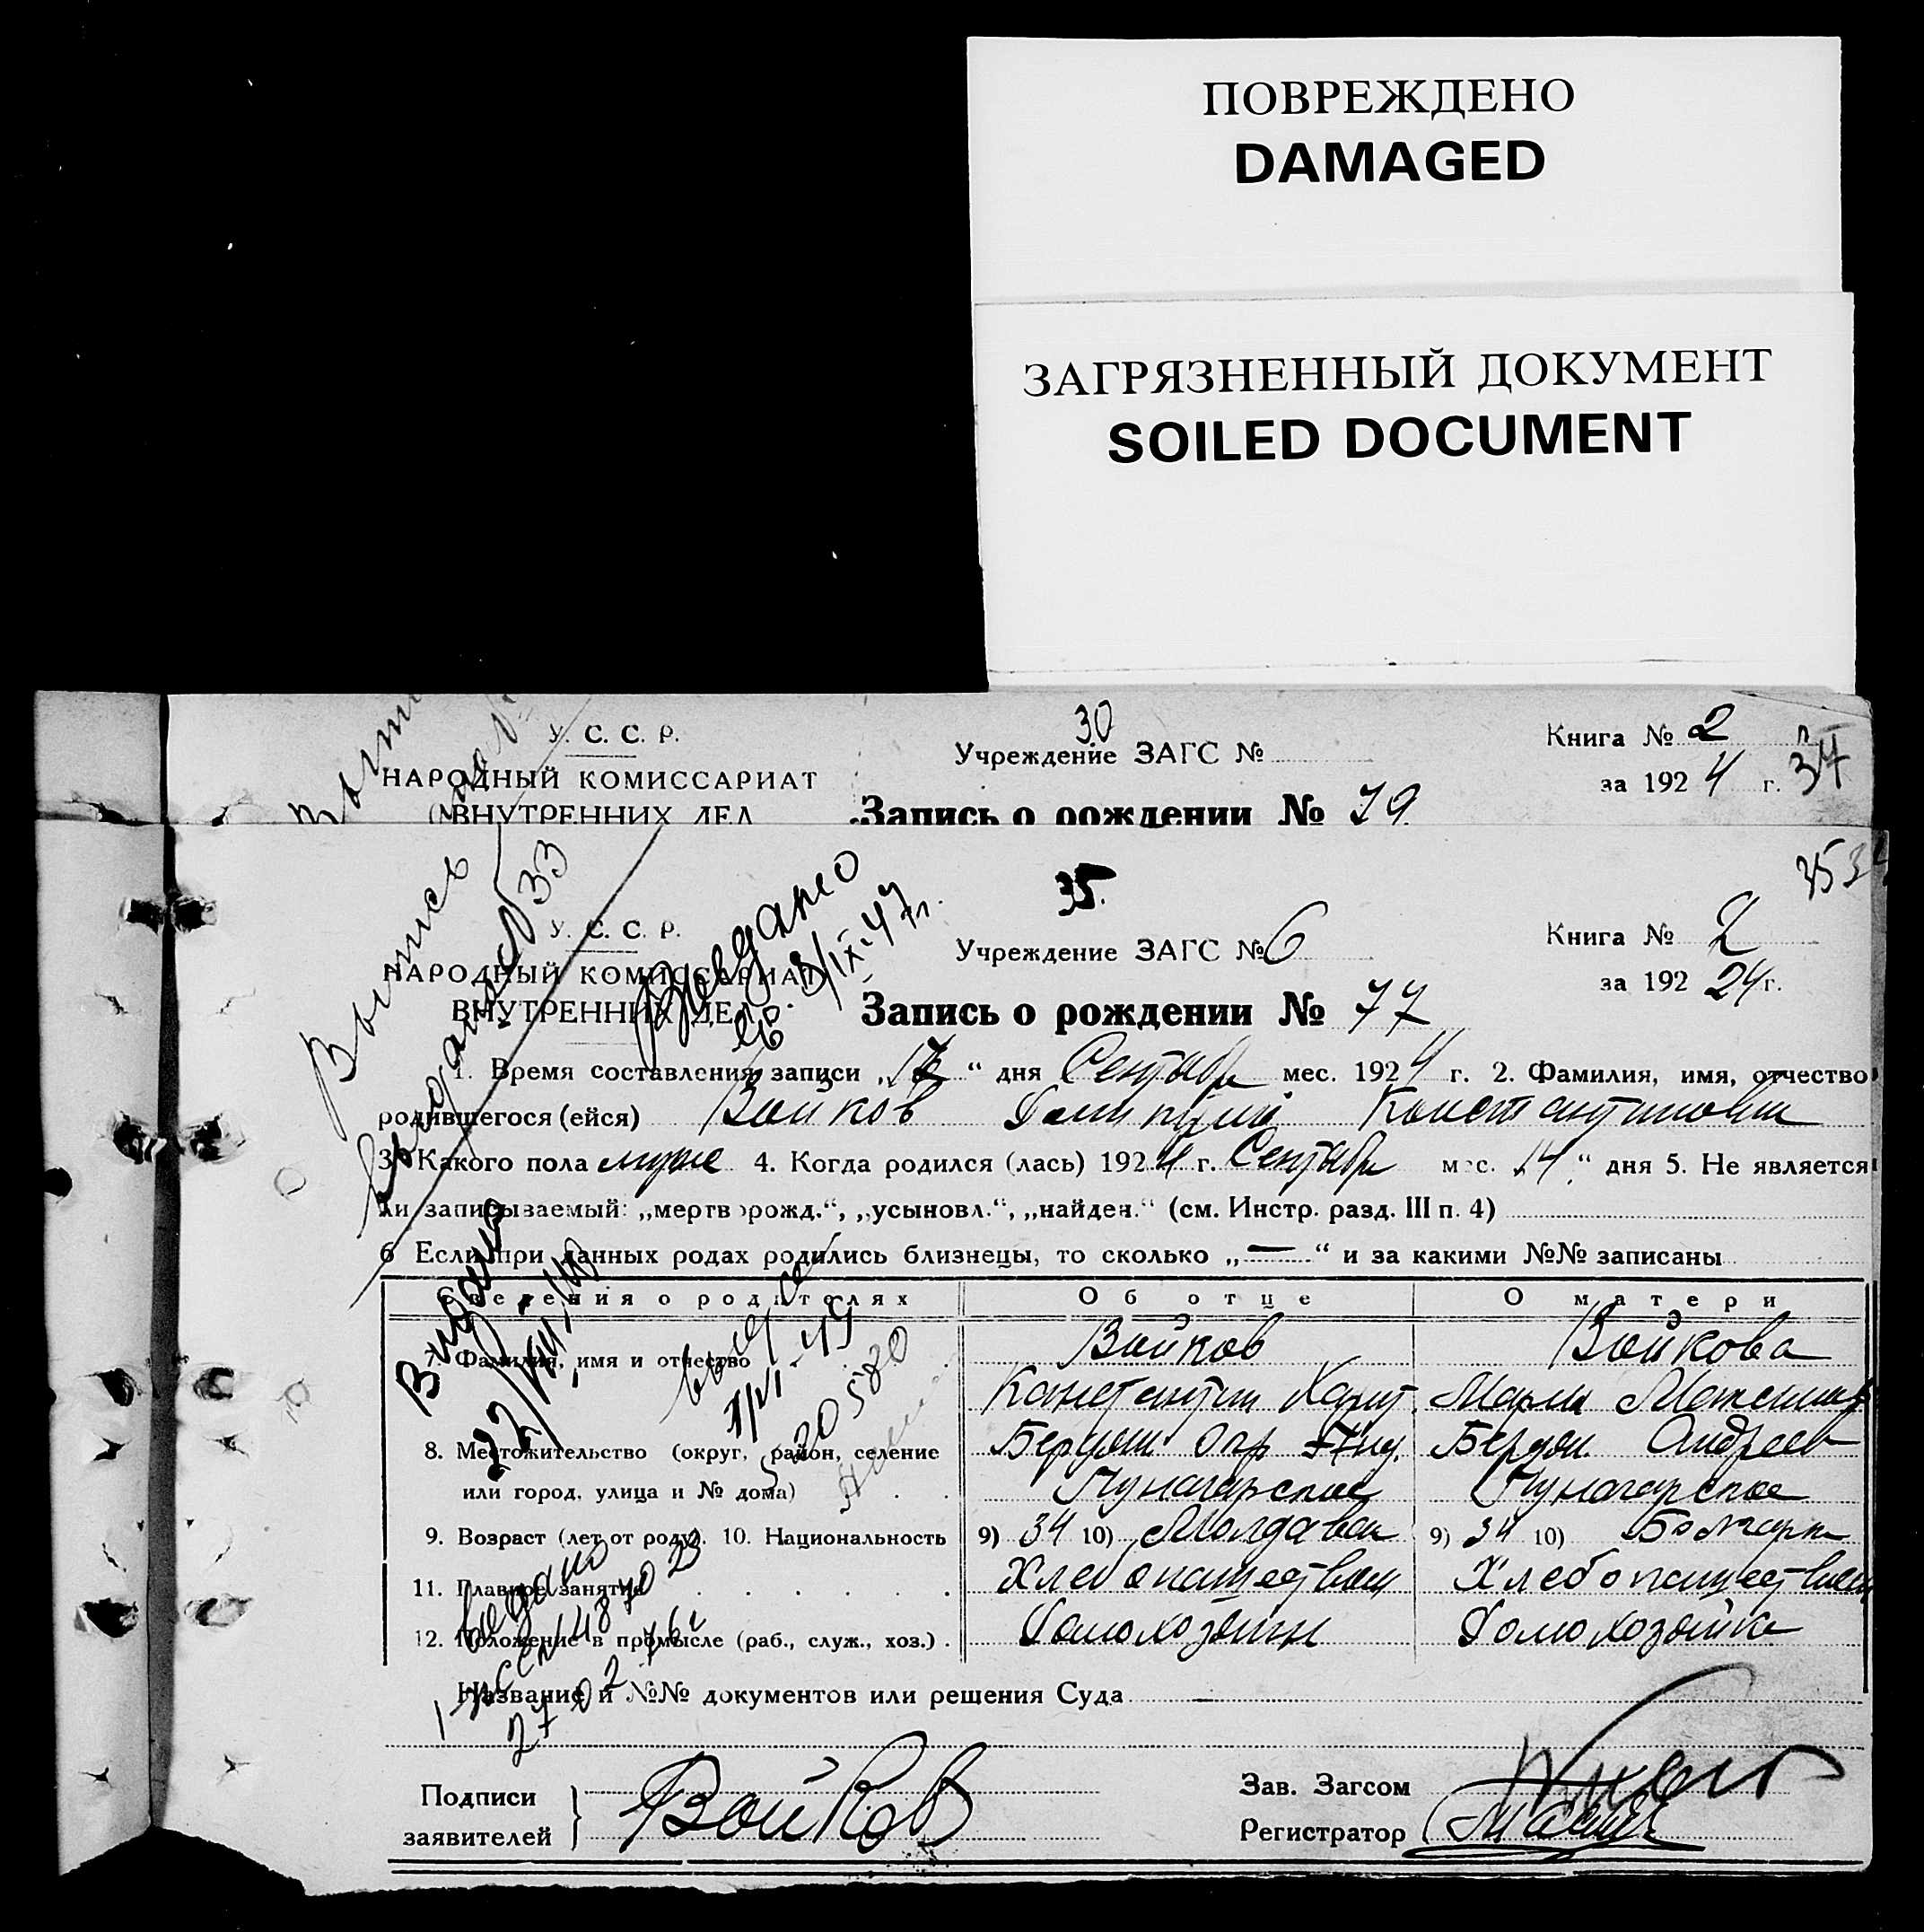 ПОВРЕЖДЕНО
DAMAGED
ЗАГРЯЗНЕННЫЙ ДОКУМЕНТ
SOILED DOCUMENT
У. С. С. Р.
НАРОДНЫЙ КОМИССАРИАТ
ВНУТРЕННИХ ДЕЛ
30
Учреждение ЗАГС №
Запись о рождении № 79
Книга № 2
за 1924 г.
34
Выпись
выдана
33
Выдано
8/IX-47 г.
35.
35
У. С. С. Р.
НАРОДНЫЙ КОМИССАРИАТ
ВНУТРЕННИХ ДЕЛ
Учреждение ЗАГС № 6
Запись о рождении № 77
Книга № 2
за 192 24 г.
1. Время составления записи „17“ дня Сентября мес. 1924 г. 2. Фамилия, имя, отчество
родившегося (ейся) Войков Константинович
3. Какого пола муж 4. Когда родился (лась) 1924 г. Сентября мес. „14“ дня 5. Не является
ли записываемый: „мертворожд.“, „усыновл.“, „найден.“ (см. Инстр. разд. III п. 4)
6 Если при данных родах родились близнецы, то сколько „—“ и за какими №№ записаны
Сведения о родителях Об отце О матери
7. Фамилия, имя и отчество Войков Войкова
Константин Мария
8. Местожительство (округ, район, селение Бердян Бердян Андреев
или город, улица и № дома) Луначарское Луначарское
9. Возраст (лет от роду). 10. Национальность 9) 34 10) Молдаван 9) 34 10) Болгарк
11. Главное занятие Хлебопашество Хлебопашество
12. Положение в промысле (раб., служ., хоз.) Домохозяин Домохозяйка
Название и №№ документов или решения Суда —
Видано
205820
выдано
27 02 76 г
Подписи
заявителей
Войков
Зав. Загсом
Регистратор